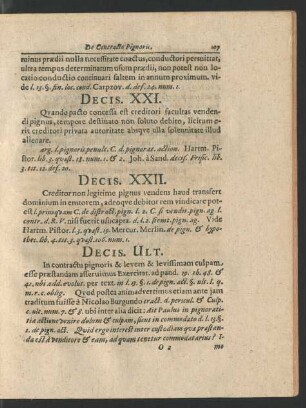 De Contractu Pignoris. 107
minus prædii nulla necessitate coactus, conductori permittat,
ultra tempus determinatum usum prædii, non potest non lo-
catio conductio continuari saltem in annum proximum. vi-
de l. 13. §. fin. loc. cond. Carpzov. d. def. 24. num. 1.
DECIS. XXI.
Quando pacto concessa est creditori facultas venden-
di pignus, tempore destinato non soluto debito, licitum e-
rit creditori privata autoritate absque ulla solennitate illud
alienare.
arg. l. pignoris penult. C. d. pignorat. action. Hartm. Pi-
stor. lib. 3. quæst. 18. num. 1. & 2. Joh. à Sand. decis. Frisic. lib.
3. tit. 12. def. 20.
DECIS. XXII.
Creditor non legitime pignus vendens haud transfert
dominium in emtorem, adeoque debitor rem vindicare pot-
est l. primæ C. de distract. pign. l. 1. C si vendit. pign. ag. l.
contr. d. R. V. nisi fuerit usucapta. d. l. 1. si remt. pign. ag. Vide
Hartm. Pistor. l. 3. quæst. 19. Mercur. Merlin. de pign. & hypo-
thec. lib. 4. tit. 3. quæst. 106. num. 1.
DECIS. ULT.
In contractu pignoris & levem & levissimam culpam,
esse præstandam asseruimus Exercitat. ad pand. 19. th. 48. &
41. ubi add. evolut. per text. in l. 19. §. 1. de pign. act. §. ult. I. q.
m. r. c. oblig. Quod postea animadvertimus etiam ante jam
traditum fuisse à Nicolao Burgundo tract. d. pericul. & Culp.
c. ult. mm. 7. & 8. ubi inter alia dicit: Ait Paulus in pignerati-
tia actione venire dolum & culpam, sicut in commodato d. l. 13. §.
1. de pign. act. Quid ergo interest inter custodiam quæ præstan-
da est à venditore & eam, ad quam tenetur commodatarius? I-
O 2 mo